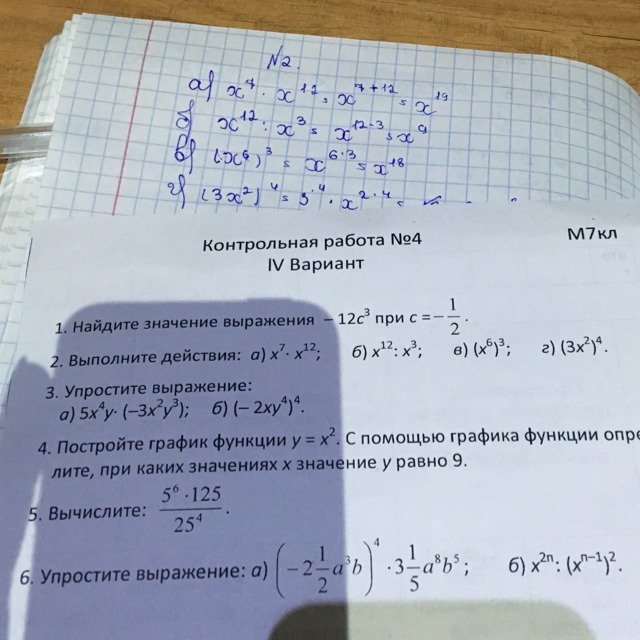 N2.
а) x⁷ · x¹² = x⁷⁺¹² = x¹⁹
б) x¹² : x³ = x¹²⁻³ = x⁹
в) (x⁶)³ = x⁶·³ = x¹⁸
г) (3x²)⁴ = 3·⁴ · x²·⁴ =
Контрольная работа №4 М7кл
IV Вариант
1. Найдите значение выражения – 12c³ при c = – 1/2.
2. Выполните действия: а) x⁷· x¹²; б) x¹²: x³; в) (x⁶)³; г) (3x²)⁴.
3. Упростите выражение:
а) 5x⁴y· (–3x²y³); б) (– 2xy⁴)⁴.
4. Постройте график функции y = x². С помощью графика функции опре
лите, при каких значениях x значение y равно 9.
5. Вычислите: (5⁶ · 125)/25⁴.
6. Упростите выражение: а) (–2 1/2 a³b)⁴ · 3 1/5 a⁸b⁵; б) x²ⁿ: (xⁿ⁻¹)².